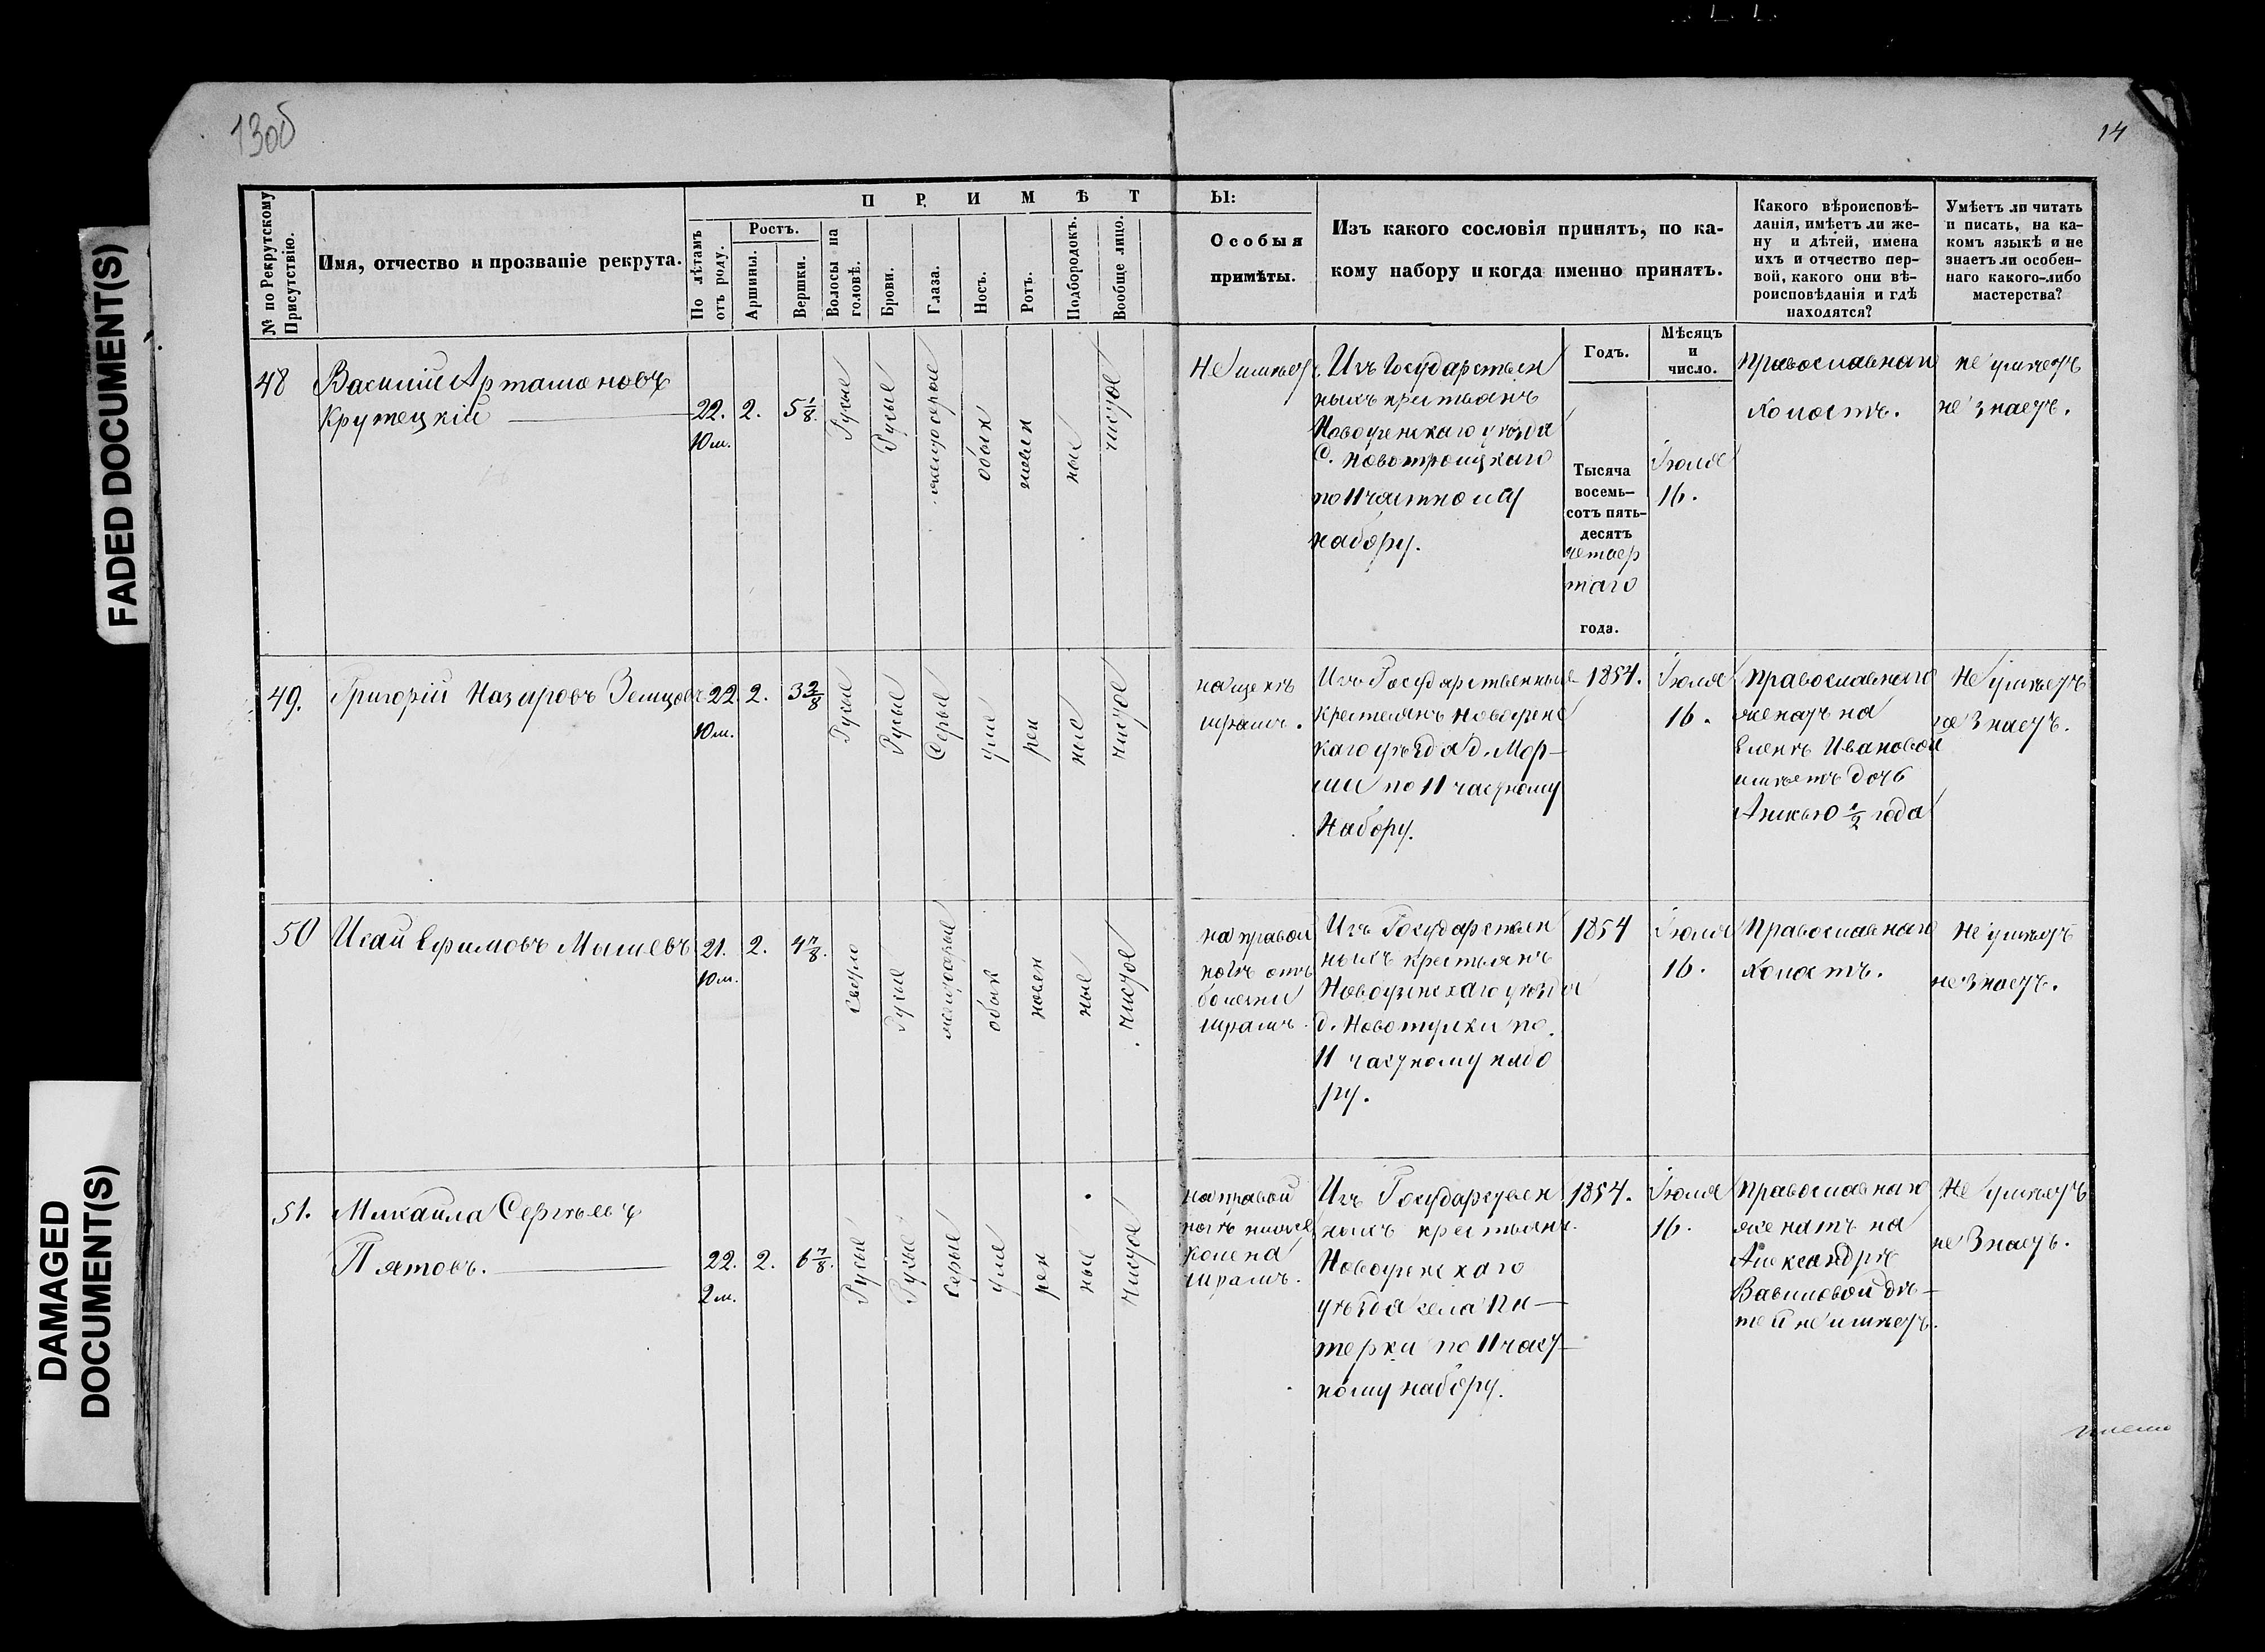 FADED DOCUMENT(S)
DAMAGED
DOCUMENT(S)
13об
14
№ по Рекрутскому
Присутствію.
Имя, отчество и прозваніе рекрута.
ПРИМѢТ
Ы:
По лѣтамъ
отъ роду.
Ростъ.
Аршины.
Вершки.
Волосы на
головѣ.
Брови.
Глаза.
Носъ.
Ротъ.
Подбородокъ.
Вообще лицо.
Особыя
примѣты.
Изъ какого сословія принятъ, по ка-
кому набору и когда именно принятъ.
Какого вѣроисповѣ-
данія, имѣетъ ли же-
ну и дѣтей, имена
ихъ и отчество пер-
вой, какого они вѣ-
роисповѣданія и гдѣ
находятся?
Умѣетъ ли читать
и писать, на ка-
комъ языкѣ и не
знаетъ ли особен-
наго какого-либо
мастерства?
Годъ.
Мѣсяцъ
и
число.
48
Василій Артамоновъ
Крутецкій
22.
10 м.
2.
5 1/8.
Русые
Русые
обык
новен
ные
чистое
Не имѣетъ
Изъ Государствен
ныхъ крестьянъ
Новоузенскаго уѣзда
С. Новотроицкаго
по 11 частному
набору.
Тысяча
восемь-
сотъ пять-
десятъ
четвер
таго
года.
Іюля
16.
Православнаго
холостъ.
не умѣетъ
не знаетъ.
49.
Григорій Назаровъ Земцовъ
22.
10 м.
2.
3 3/8
Русые
Русые
Серые
уме
рен
ные
чистое
на щекѣ
шрамъ.
Изъ Государственныхъ
крестьянъ Новоузенс
каго уѣзда д. Мор-
ши по 11 частному
Набору.
1854.
Іюля
16.
Православнаго
женатъ на
Еленѣ Ивановой
имѣетъ дочь
1/2 года
Не умѣетъ
не знаетъ.
50
Исай Ефимовъ Мышевъ
21.
10 м.
2.
4 7/8.
Русые
обык
новен
ные
чистое
на правой
ногѣ отъ
болезни
шрамъ.
Изъ Государствен
ныхъ крестьянъ
Новоузенскаго уѣзда
д. Новотулки по
11 частному набо
ру.
1854
Іюля
16.
Православнаго
холостъ.
Не умѣетъ
не знаетъ.
51.
Михайла Сергѣевъ
Пятовъ.
22.
2 м.
2.
6 7/8.
Русые
Русые
серые
уме
рен
ные
чистое
на правой
ногѣ ниже
колена
шрамъ.
Изъ Государствен
ныхъ крестьянъ
Новоузенскаго
уѣзда села Пи-
терки по 11 част-
ному набору.
1854.
Іюля
16.
Православнаго
женатъ на
Александрѣ
Вавиловой дѣ-
тей не имѣетъ.
Не умѣетъ
не знаетъ.